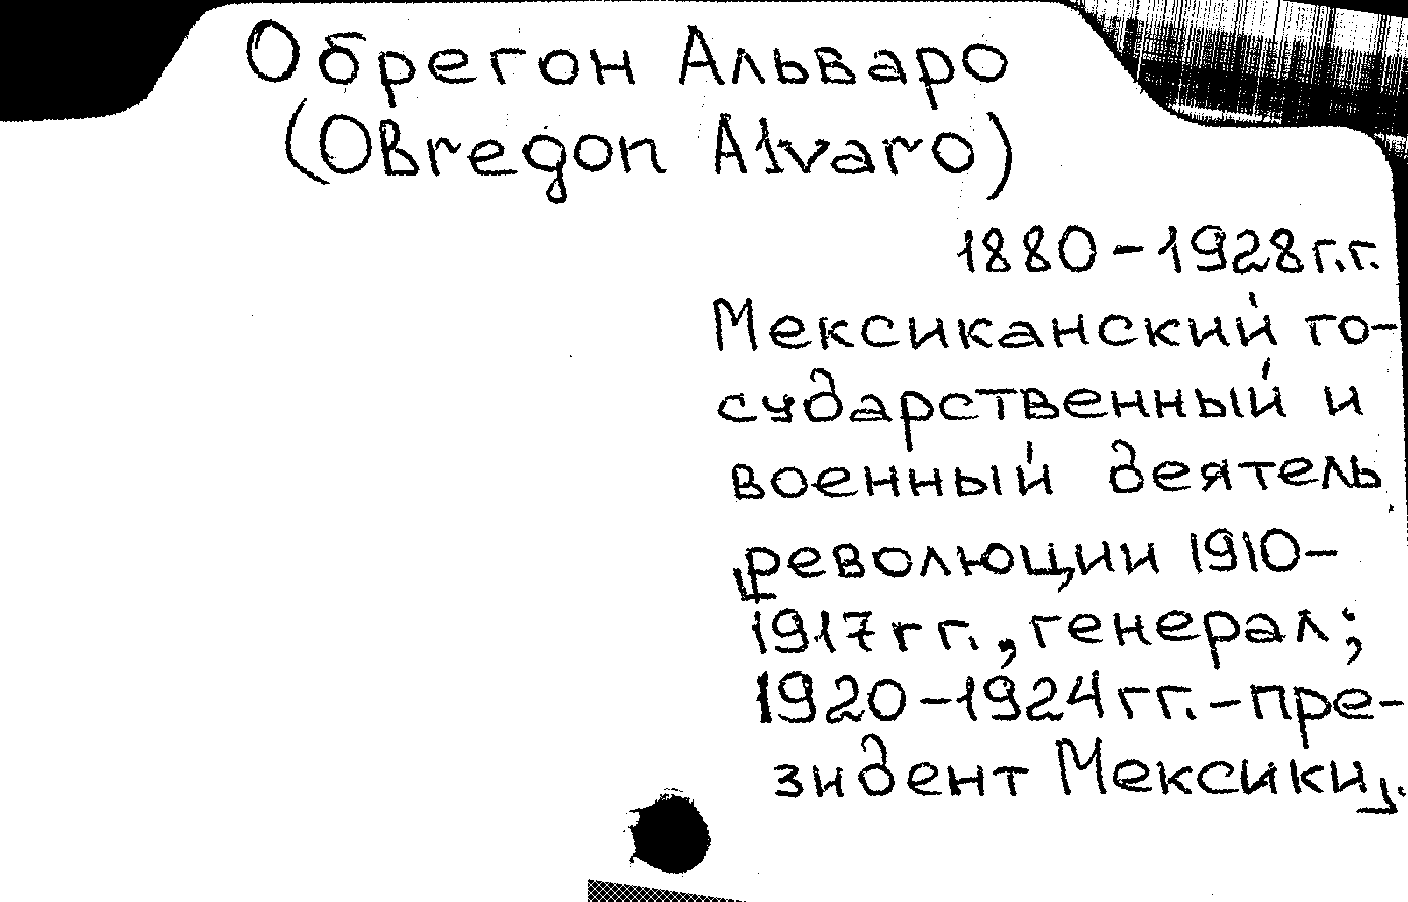 Обрегон Альваро
(Obregon Alvaro)
1880-1928г.г.
Мексиканский го-
сударственный и
военный деятель
революции 1910-
1917гг., генерал;
1920-1924гг.-пре-
зидент Мексики.